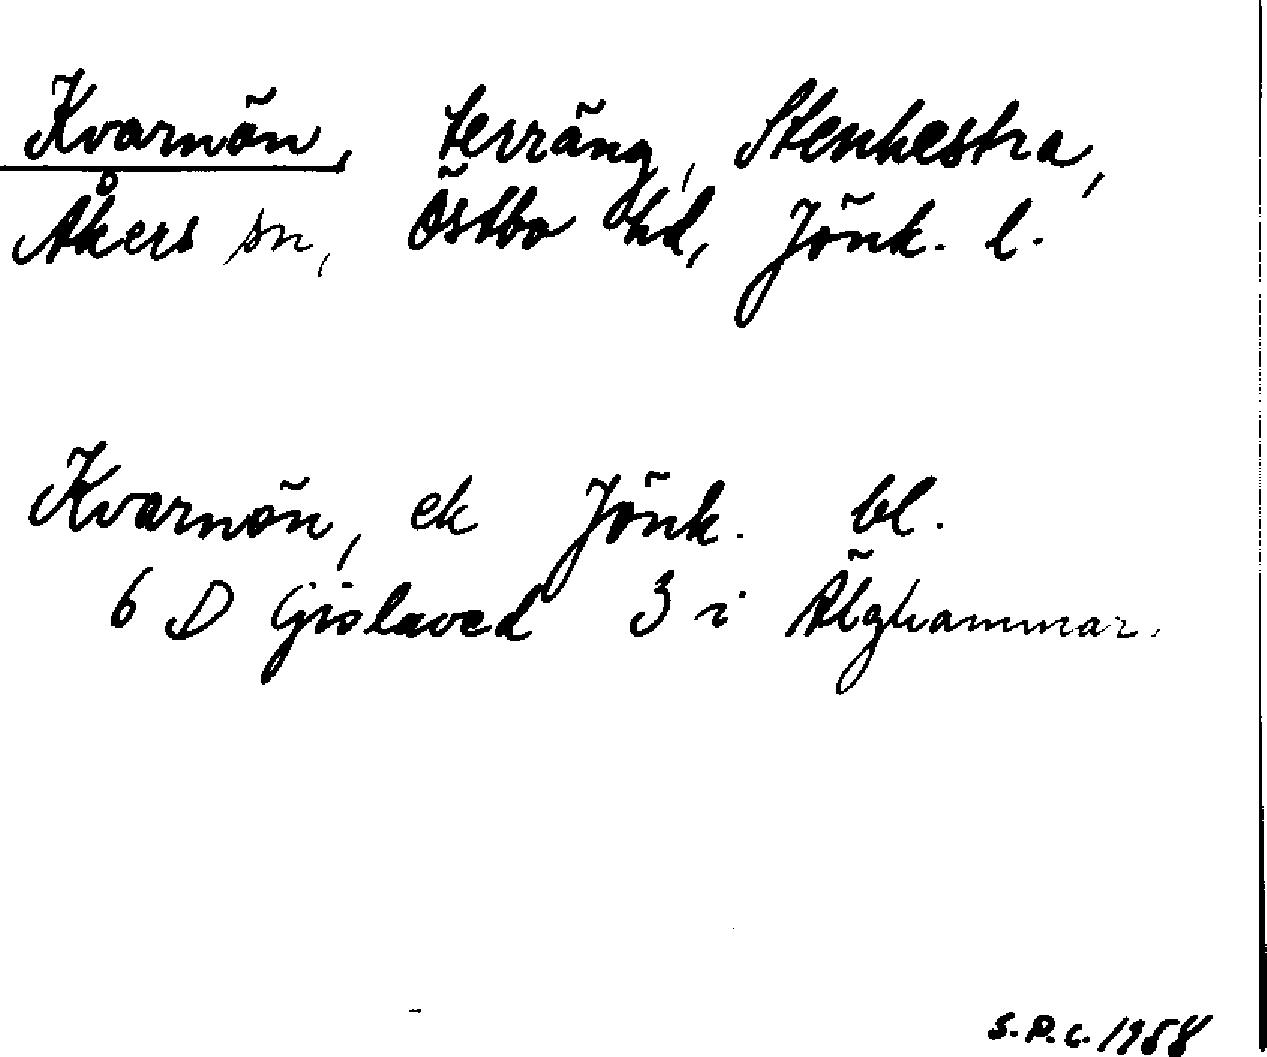 Kvarnön, terräng, Stenhestra,
Åkers sn, Östbo hd, Jönk. l.
Kvarnön, ek Jönk. bl.
6 D Gislaved 3 i Älghammar.
S.P.C. 1958